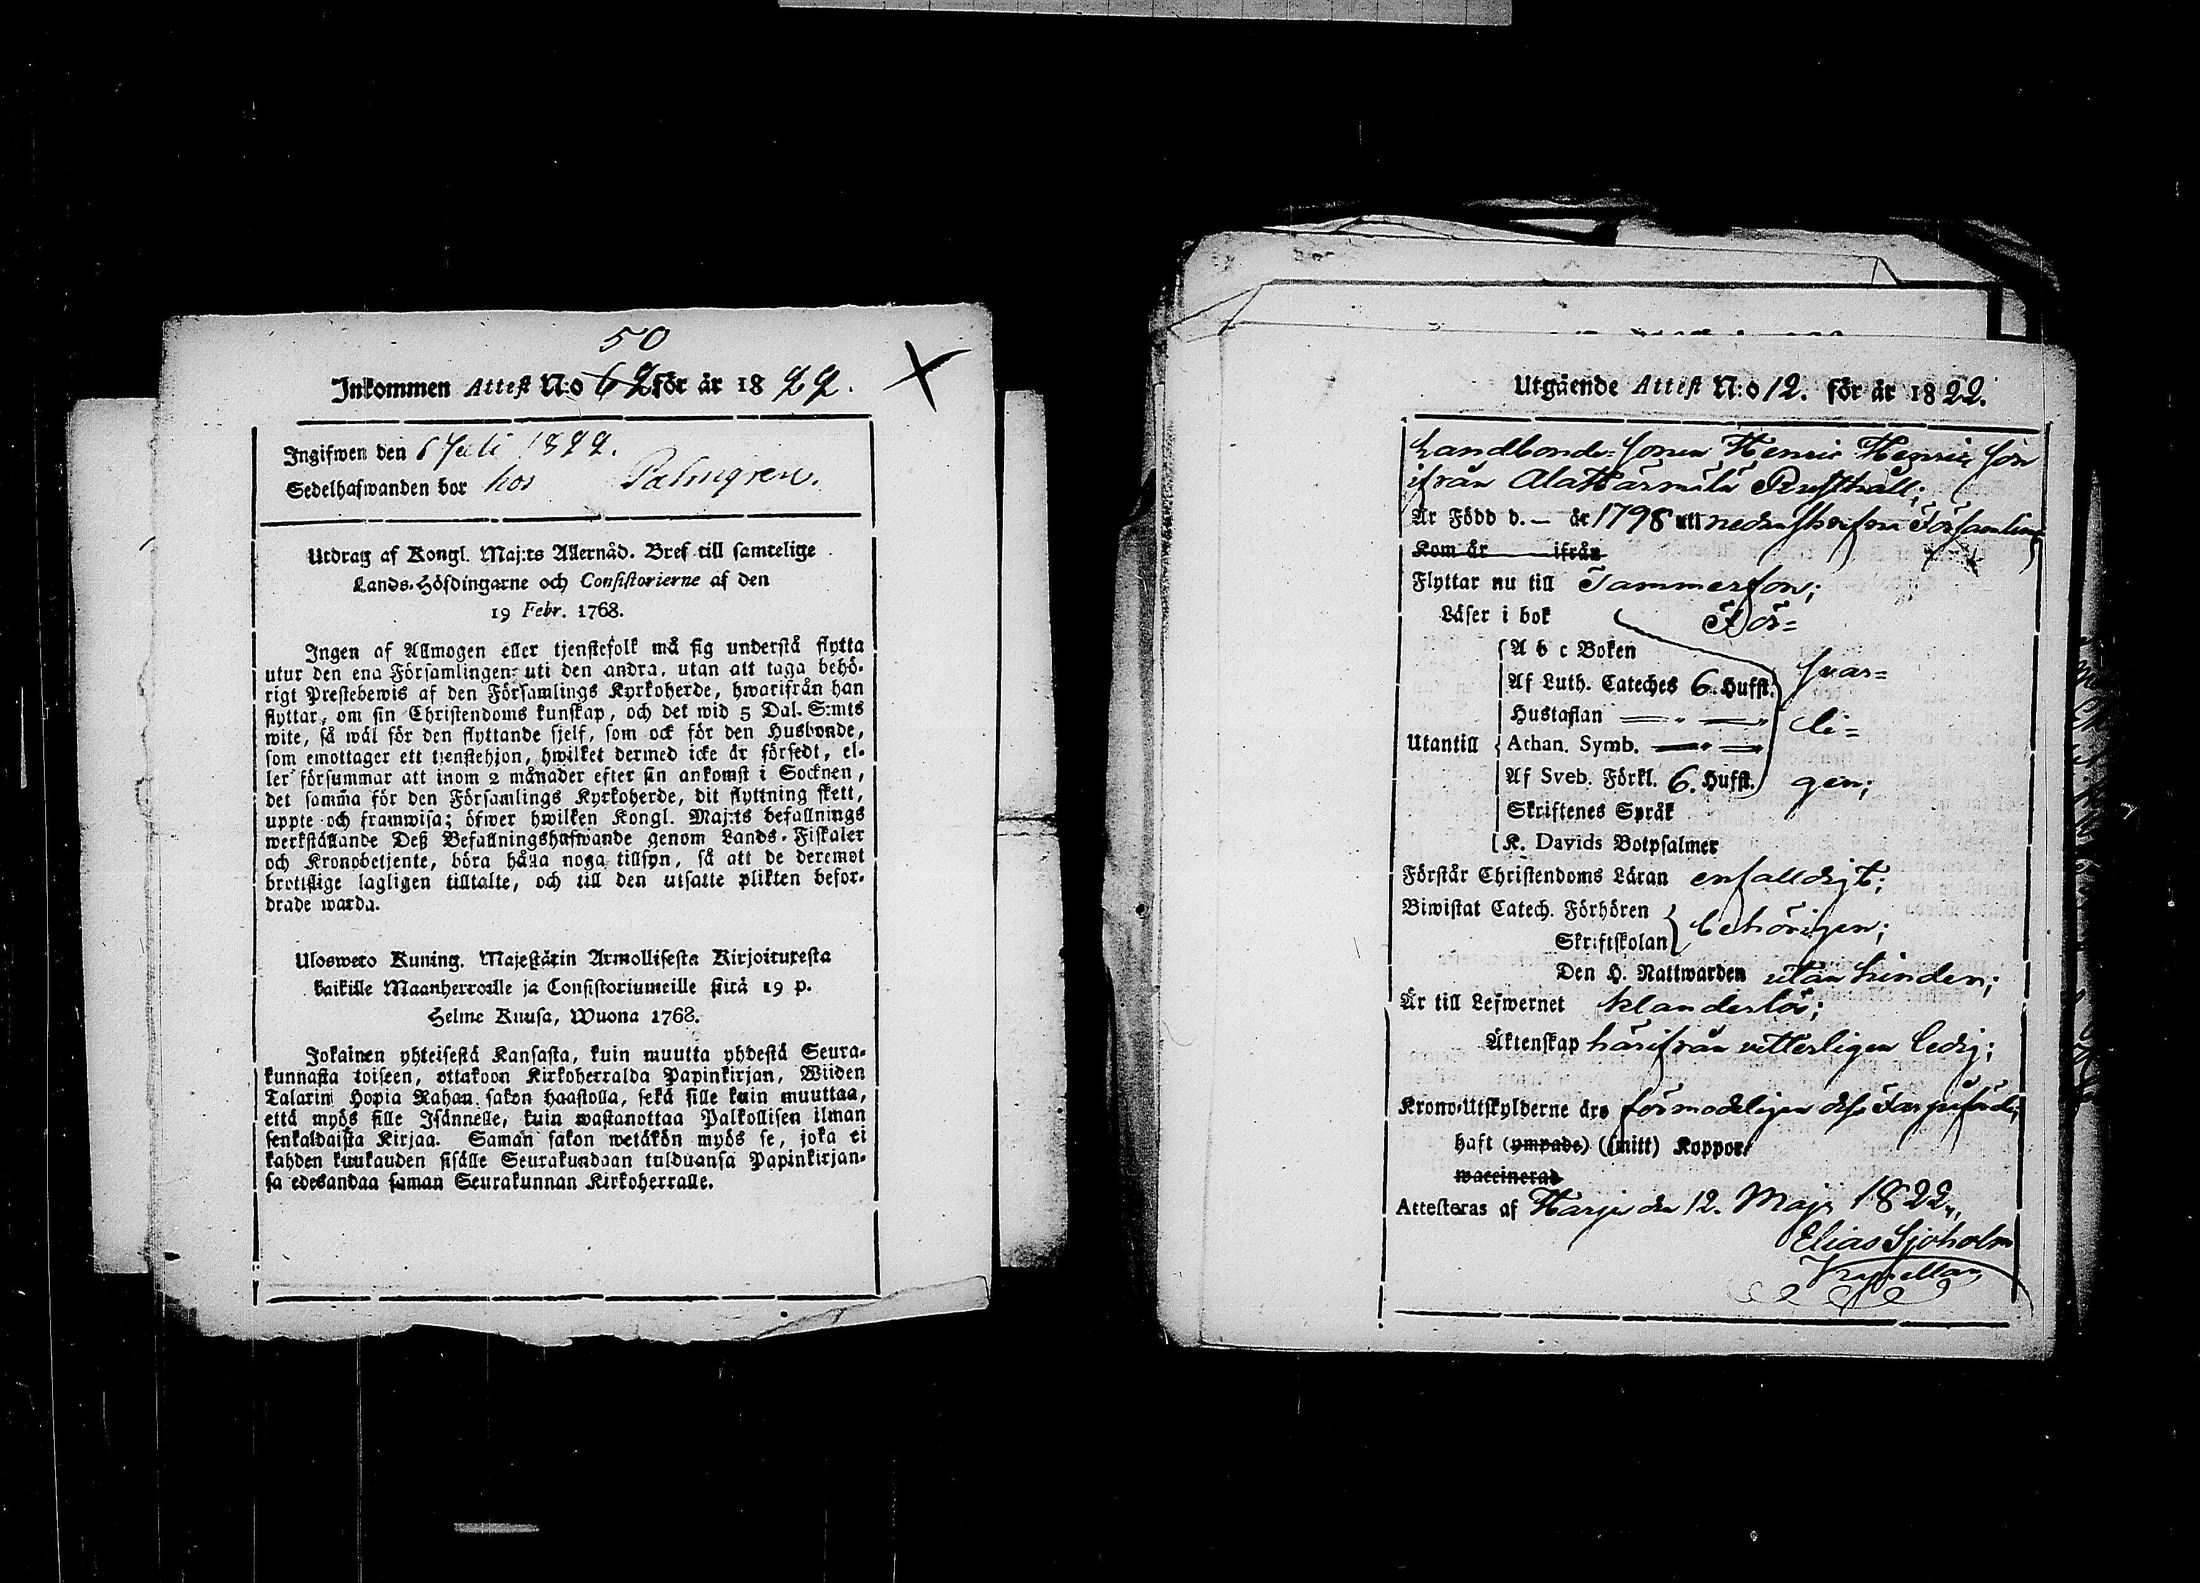 50
Inkommen Attest N:o 62 för år 1822.
Ingifwen den 6 Juli 1822.
Sedelhafwanden bor hos Palmgren.
Utdrag af Kongl. Maj:ts Allernåd. Bref till samtelige
Lands-Höfdingarne och Consistorierne af den
19 Febr. 1768.
Ingen af Allmogen eller tjenstefolk må sig understå flytta
utur den ena Församlingen uti den andra, utan att taga behö-
rigt Prestebewis af den Församlings Kyrkoherde, hwarifrån han
flyttar, om sin Christendoms kunskap, och det wid 5 Dal. S:mts
wite, så wäl för den flyttande sjelf, som ock för den Husbonde,
som emottager ett tjenstehjon, hwilket dermed icke är försedt, el-
ler försummar att inom 2 månader efter sin ankomst i Socknen,
det samma för den Församlings Kyrkoherde, dit flyttning skett,
uppte och framwisa; öfwer hwilken Kongl. Maj:ts befallnings
werkställande Deß Befallningshafwande genom Lands-Fiskaler
och Kronobetjente, böra hålla noga tillsyn, så att de deremot
brottslige lagligen tilltalte, och till den utsatte plikten befor-
drade warda.
Ulosweto Kuning. Majestätin Armollisesta Kirjoituxesta
kaikille Maanherroille ja Consistoriumeille siitä 19 p.
Helme Kuusa, Wuona 1768.
Jokainen yhteisestä Kansasta, kuin muutta yhdestä Seura-
kunnasta toiseen, ottakoon Kirkoherralda Papinkirjan, Wiiden
Talarin Hopia Rahan sakon haastolla, sekä sille kuin muuttaa,
että myös sille Isännelle, kuin wastanottaa Palkollisen ilman
senkaldaista Kirjaa. Saman sakon wetäkön myös se, joka ei
kahden kuukauden sisälle Seurakundaan tulduansa Papinkirjan-
sa edesandaa saman Seurakunnan Kirkoherralle.
Utgående Attest N:o 12. för år 1822.
Landbonde-Sonen Henric Henricsson
ifrån Ala Rusthåll;
Är Född d. — år 1798 uti Församling
Kom år ifrån
Flyttar nu till Tammerfors;
Läser i bok För-
A b c Boken
Af Luth. Cateches 6. Hufst. svar-
Hustaflan — " — li-
Utantill Athan. Symb. — " —
Af Sveb. Förkl. 6. Hufst. gen;
Skriftenes Språk
K. Davids Botpsalmer
Förstår Christendoms Läran enfalldigt;
Biwistat Catech. Förhören
Skriftskolan behörigen;
Den H. Nattwarden utan hinder;
Är till Lefwernet klanderlös;
Äktenskap härifrån vitterligen ledig;
Krono-Utskylderne äro förmodeligen
haft (ympade) (smitt) Koppor
waccinerad
Attesteras af Harju den 12. Maji 1822.
Elias Sjöholm
Kapellan